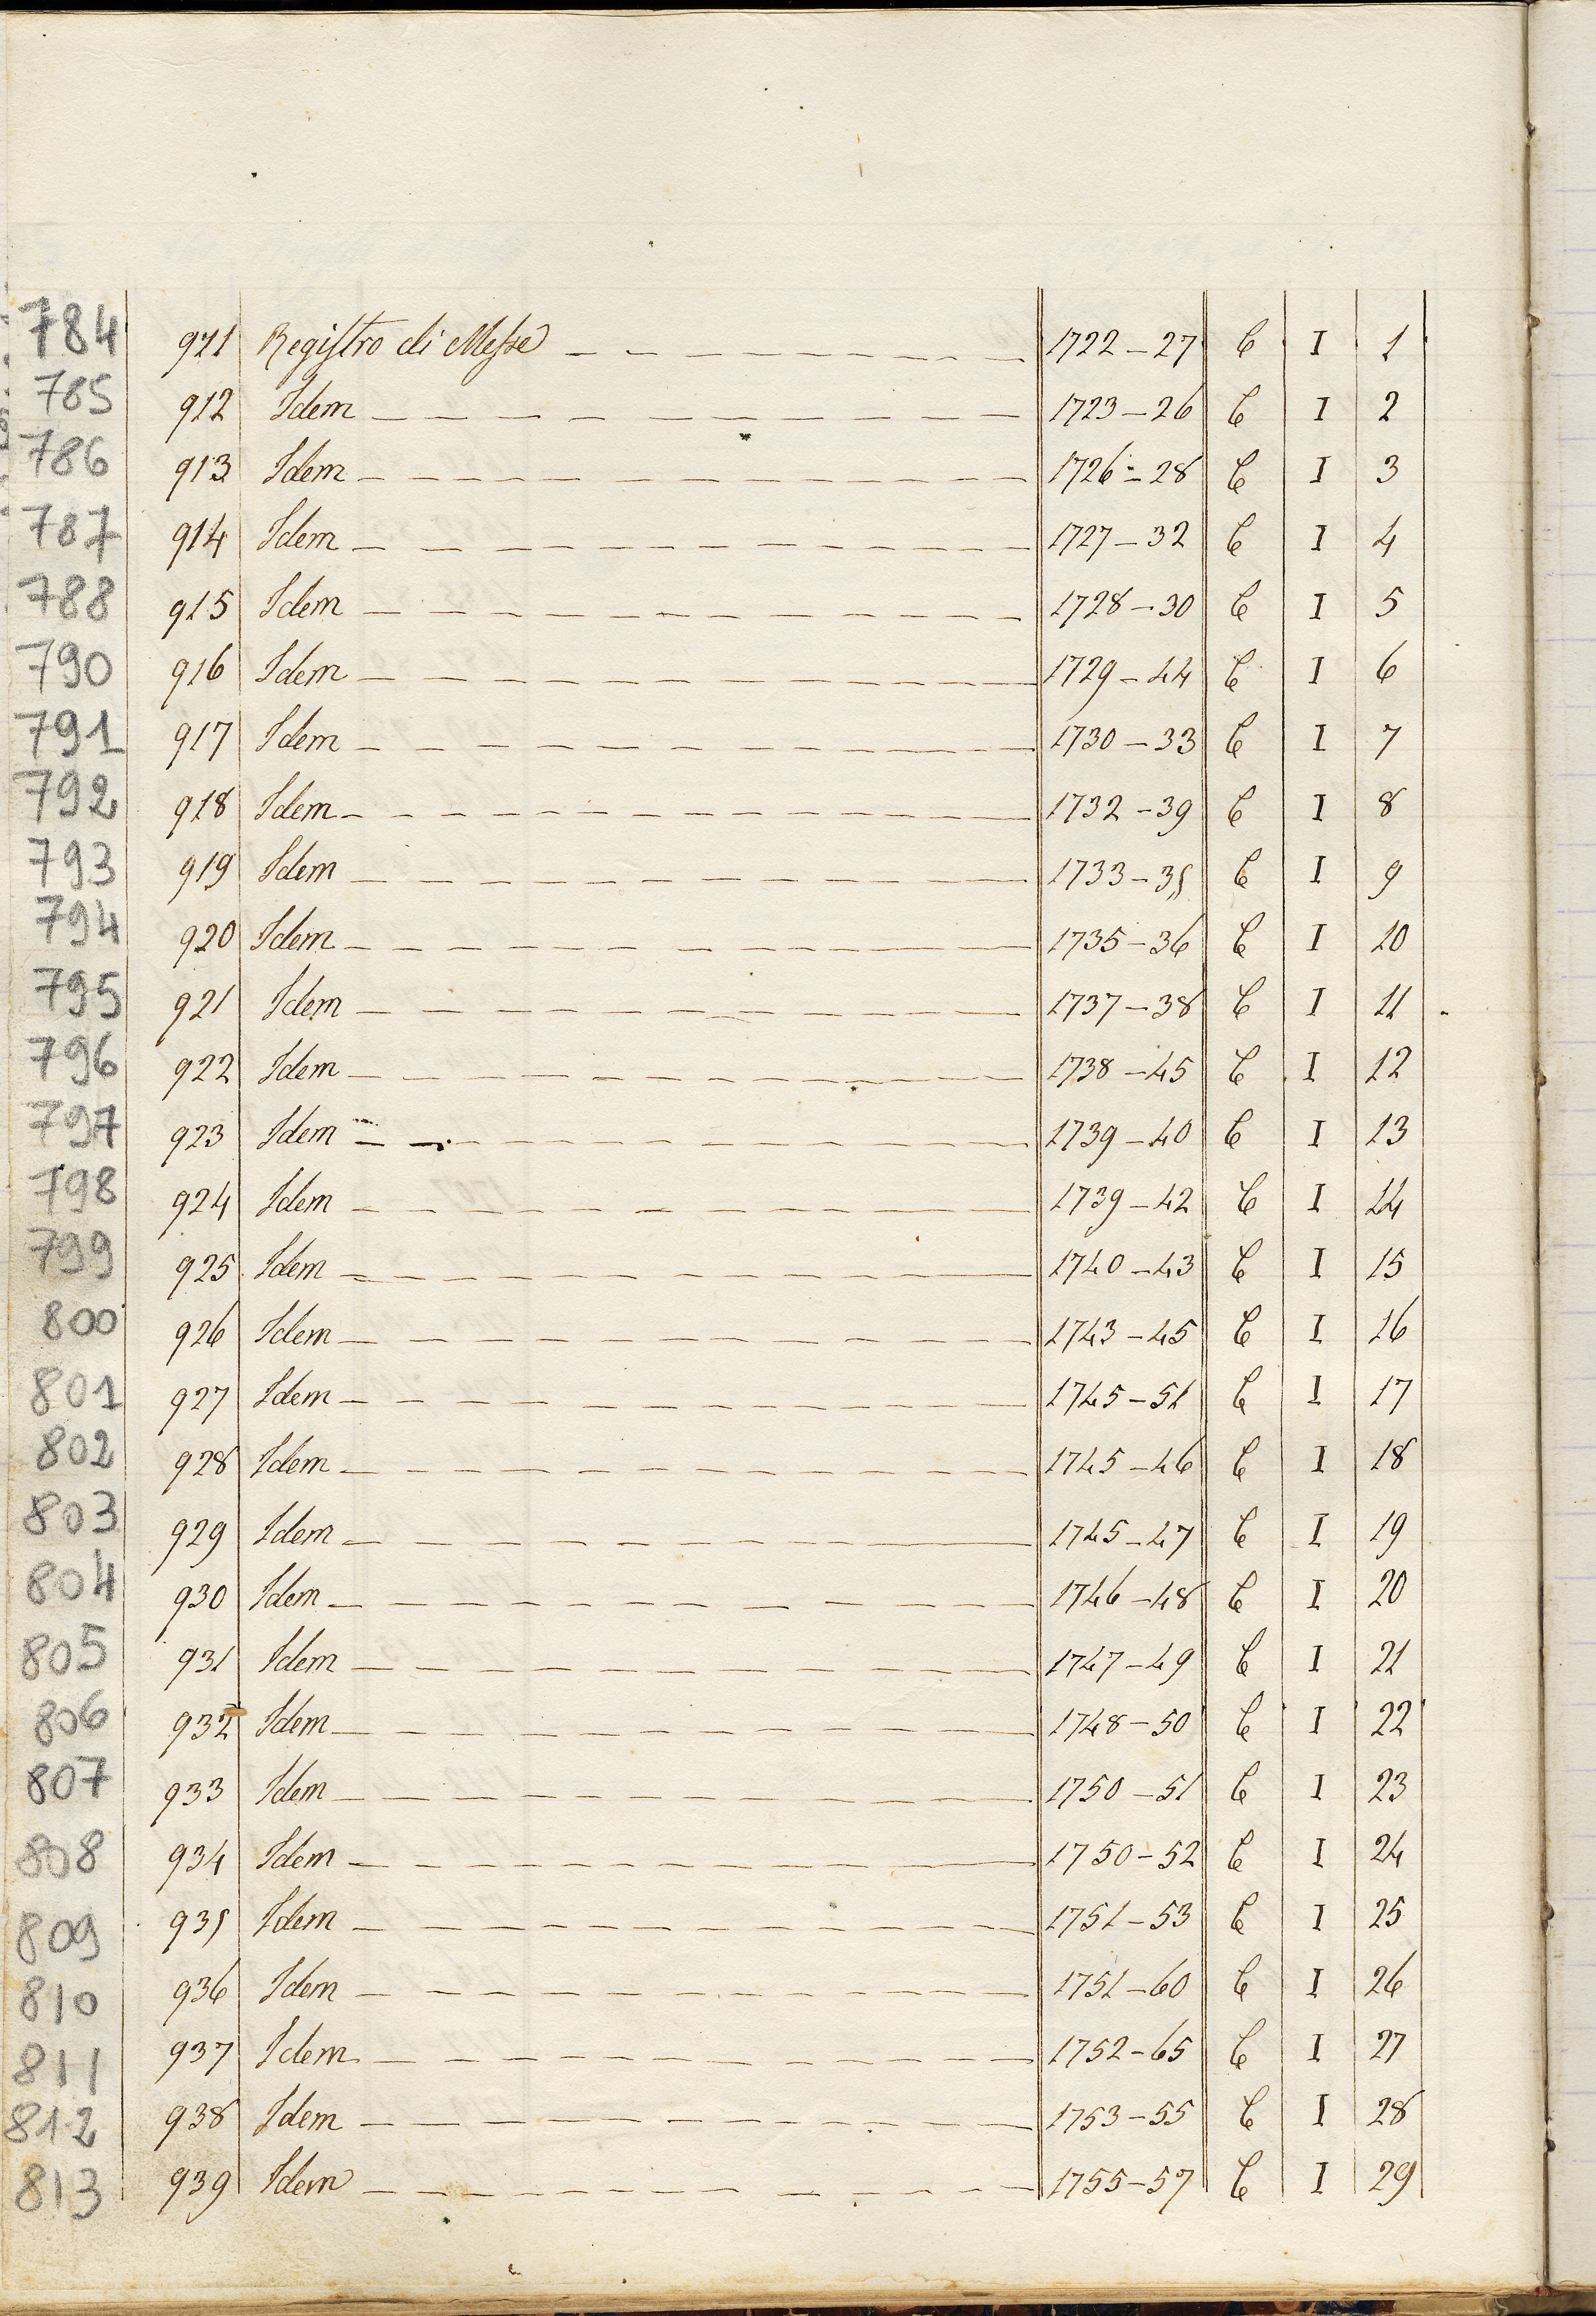 784 911 Registro di Messe 1722-27 C I 1
785 912 Idem 1723-26 C I 2
786 913 Idem 1726-28 C I 3
787 914 Idem 1727-32 C I 4
788 915 Idem 1728-30 C I 5
790 916 Idem 1729-44 C I 6
791 917 Idem 1730-33 C I 7
792 918 Idem 1732-39 C I 8
793 919 Idem 1733-35 C I 9
794 920 Idem 1735-36 C I 10
795 921 Idem 1737-38 C I 11
796 922 Idem 1738-45 C I 12
797 923 Idem 1739-40 C I 13
798 924 Idem 1739-42 C I 14
799 925 Idem 1740-43 C I 15
800 926 Idem 1743-45 C I 16
801 927 Idem 1745-51 C I 17
802 928 Idem 1745-46 C I 18
803 929 Idem 1745-47 C I 19
804 930 Idem 1746-48 C I 20
805 931 Idem 1747-49 C I 21
806 932 Idem 1748-50 C I 22
807 933 Idem 1750-51 C I 23
808 934 Idem 1750-52 C I 24
809 935 Idem 1751-53 C I 25
810 936 Idem 1751-60 C I 26
811 937 Idem 1752-65 C I 27
812 938 Idem 1753-55 C I 28
813 939 Idem 1755-57 C I 29